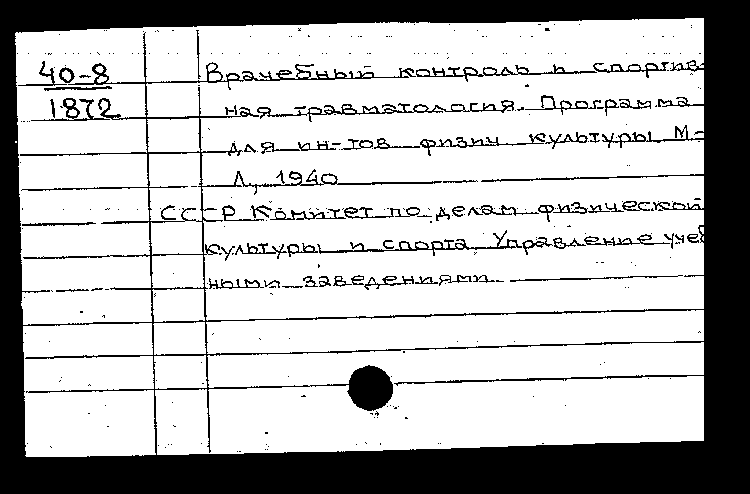 40-8
1872
Врачебный контроль и спортив-
ная травматология. Программа
для ин-тов физич культуры. М-
Л, 1940
СССР Комитет по делам физической
культуры и спорта. Управление учеб
ными заведениями